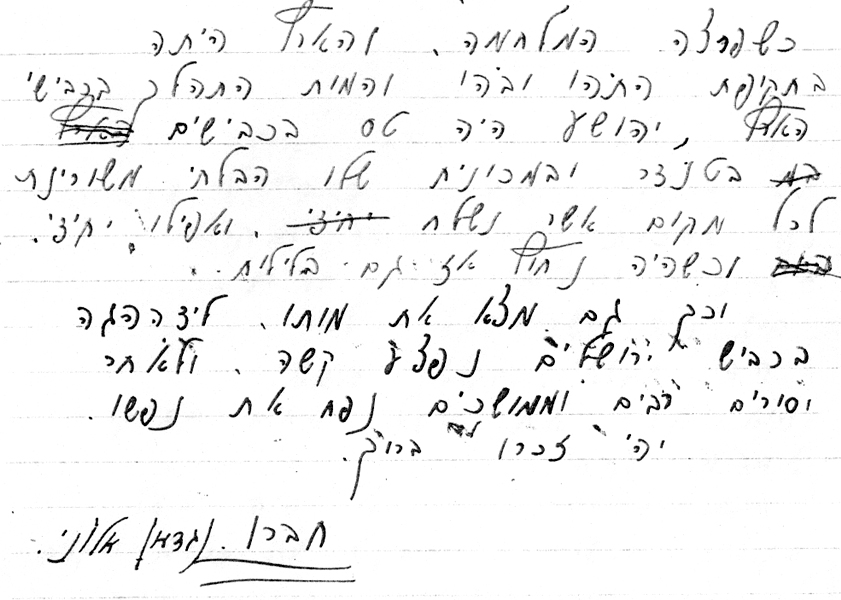 כשפרצה המלחמה. והארץ היתה
בתקופת התהו ובהו והמות התהלך בכבישי
הארץ, יהושע היה טס בכבישים
בטנדר ובמכונית שלו הבלתי משורינת
לכל מקום אשר נשלח יחידי. ואפילו יחידי.
וכשהיה נחוץ אז גם בלילות.
וכך גם מצא את מותו. ליד ההגה
בכביש ירושלים נפצע קשה. ולאחר
יסורים רבים וממושכים נפח את נפשו.
יהי זכרו ברוך.
חברו. (גדע) אלוני.